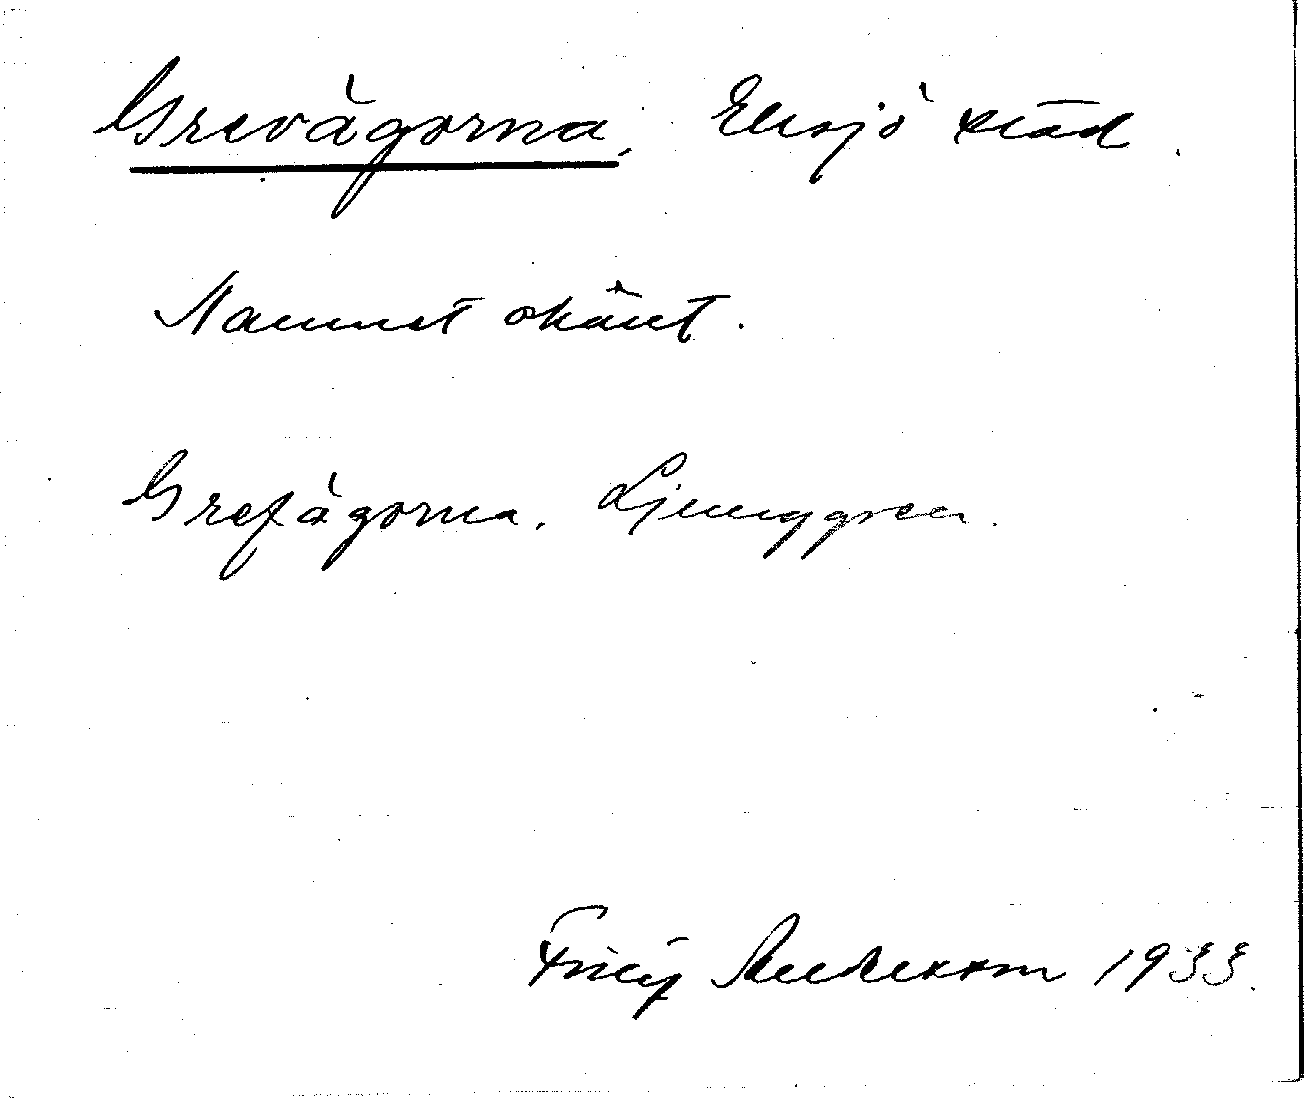 Grevågorna, Eksjö stad.
Namnet okänt.
Grefågorna. Ljunggren.
Fritz Andersson 1933.